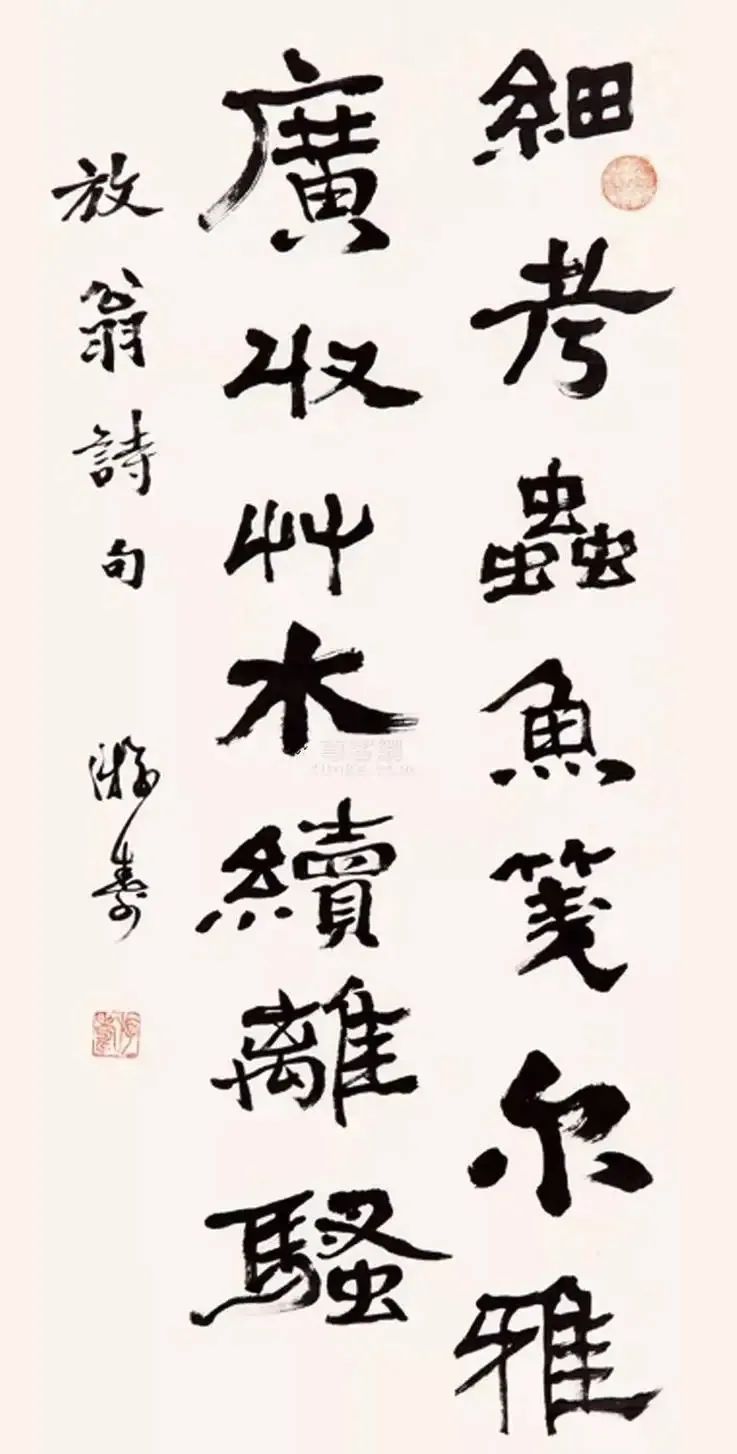 細考蟲魚箋尔雅
廣収艸木續離騷
放翁詩句
游壽